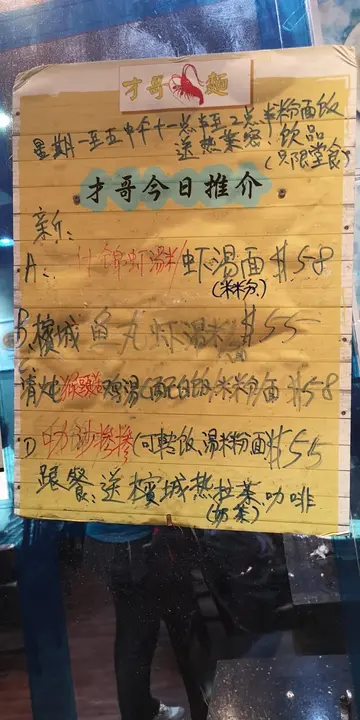 才哥 麵
星期一至五中午十一点半至2点半粉面饭
送热茶 饮品
(只限堂食)
才哥今日推介
新:
A: 什錦虾湯粉 虾湯面 $58
(米粉)
B, 檳城鱼丸虾湯米 $55
清炖猴頭菇鸡湯(配白饭,米粉面 $58
D 叻沙 (可轉饭,湯米粉面 $55
跟餐:送檳城热拉茶,咖啡
(奶茶)